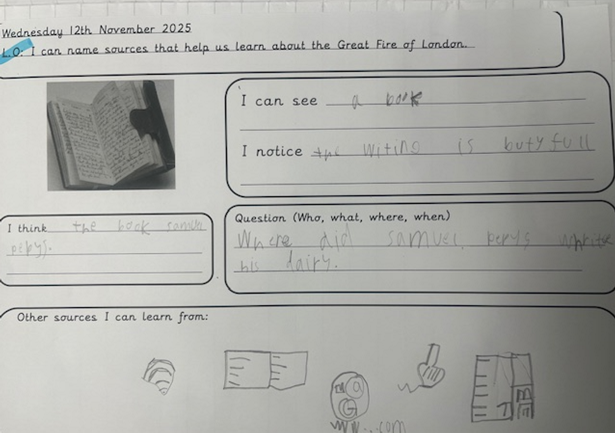 Wednesday 12th November 2025
L.O: I can name sources that help us learn about the Great Fire of London.
I can see a book
I notice the witing is butyfull
I think the book
pepys.
Question (Who, what, where, when)
Where did samuel pepys
his dairy.
Other sources I can learn from:
www. .com